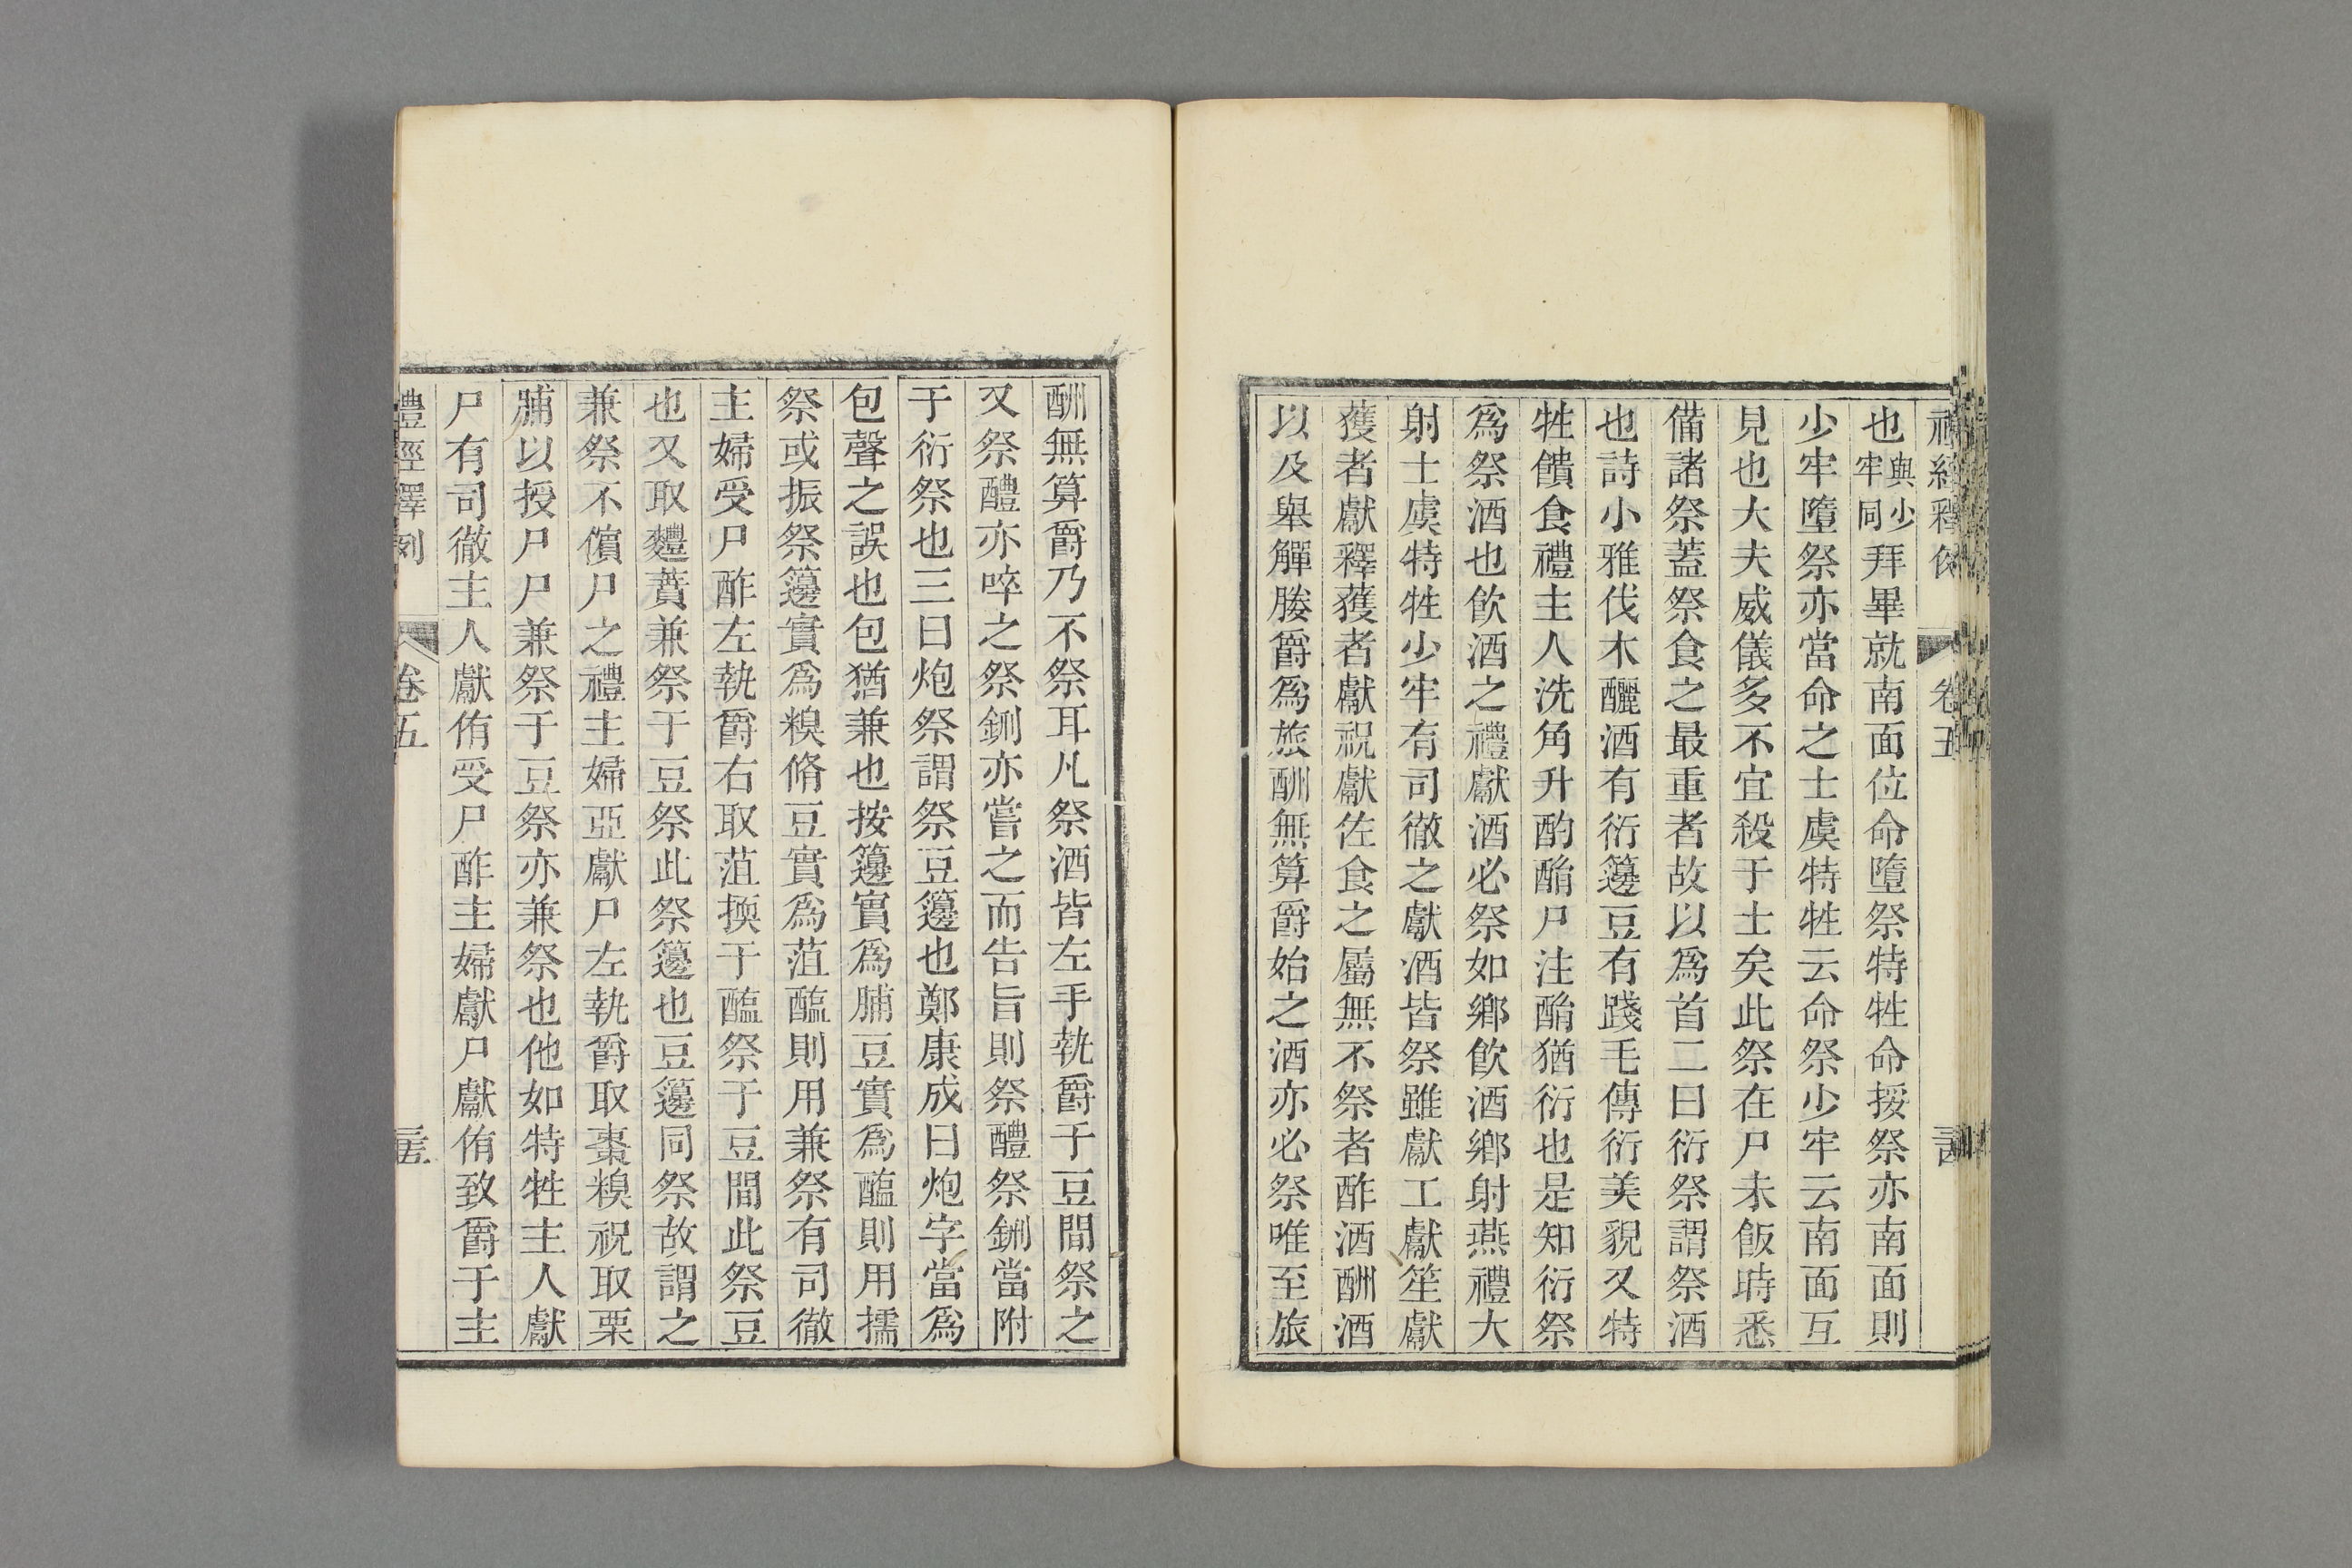 禮經釋例 卷五
也與少牢同拜畢就南面位命墮祭特牲命挼祭亦南面則
少牢墮祭亦當命之士虞特牲云命祭少牢云南面互
見也大夫威儀多不宜殺于士矣此祭在尸未飯時悉
備諸祭蓋祭食之最重者故以爲首二曰衍祭謂祭酒
也詩小雅伐木釃酒有衍籩豆有踐毛傳衍美貌又特
牲饋食禮主人洗角升酌酳尸注酳猶衍也是知衍祭
爲祭酒也飮酒之禮獻酒必祭如鄉飮酒鄉射燕禮大
射士虞特牲少牢有司徹之獻酒皆祭雖獻工獻笙獻
獲者獻釋獲者獻祝獻佐食之屬無不祭者酢酒酬酒
以及舉觶媵爵爲旅酬無算爵始之酒亦必祭唯至旅
酬無算爵乃不祭耳凡祭酒皆左手執爵于豆間祭之
又祭醴亦啐之祭鉶亦嘗之而告旨則祭醴祭鉶當附
于衍祭也三曰炮祭謂祭豆籩也鄭康成曰炮字當爲
包聲之誤也包猶兼也按籩實爲脯豆實爲醢則用擩
祭或振祭籩實爲糗脩豆實爲菹醢則用兼祭有司徹
主婦受尸酢左執爵右取菹擩于醢祭于豆間此祭豆
也又取麷蕡兼祭于豆祭此祭籩也豆籩同祭故謂之
兼祭不儐尸之禮主婦亞獻尸左執爵取棗糗祝取栗
脯以授尸尸兼祭于豆祭亦兼祭也他如特牲主人獻
尸有司徹主人獻侑受尸酢主婦獻尸獻侑致爵于主
禮經釋例 卷五